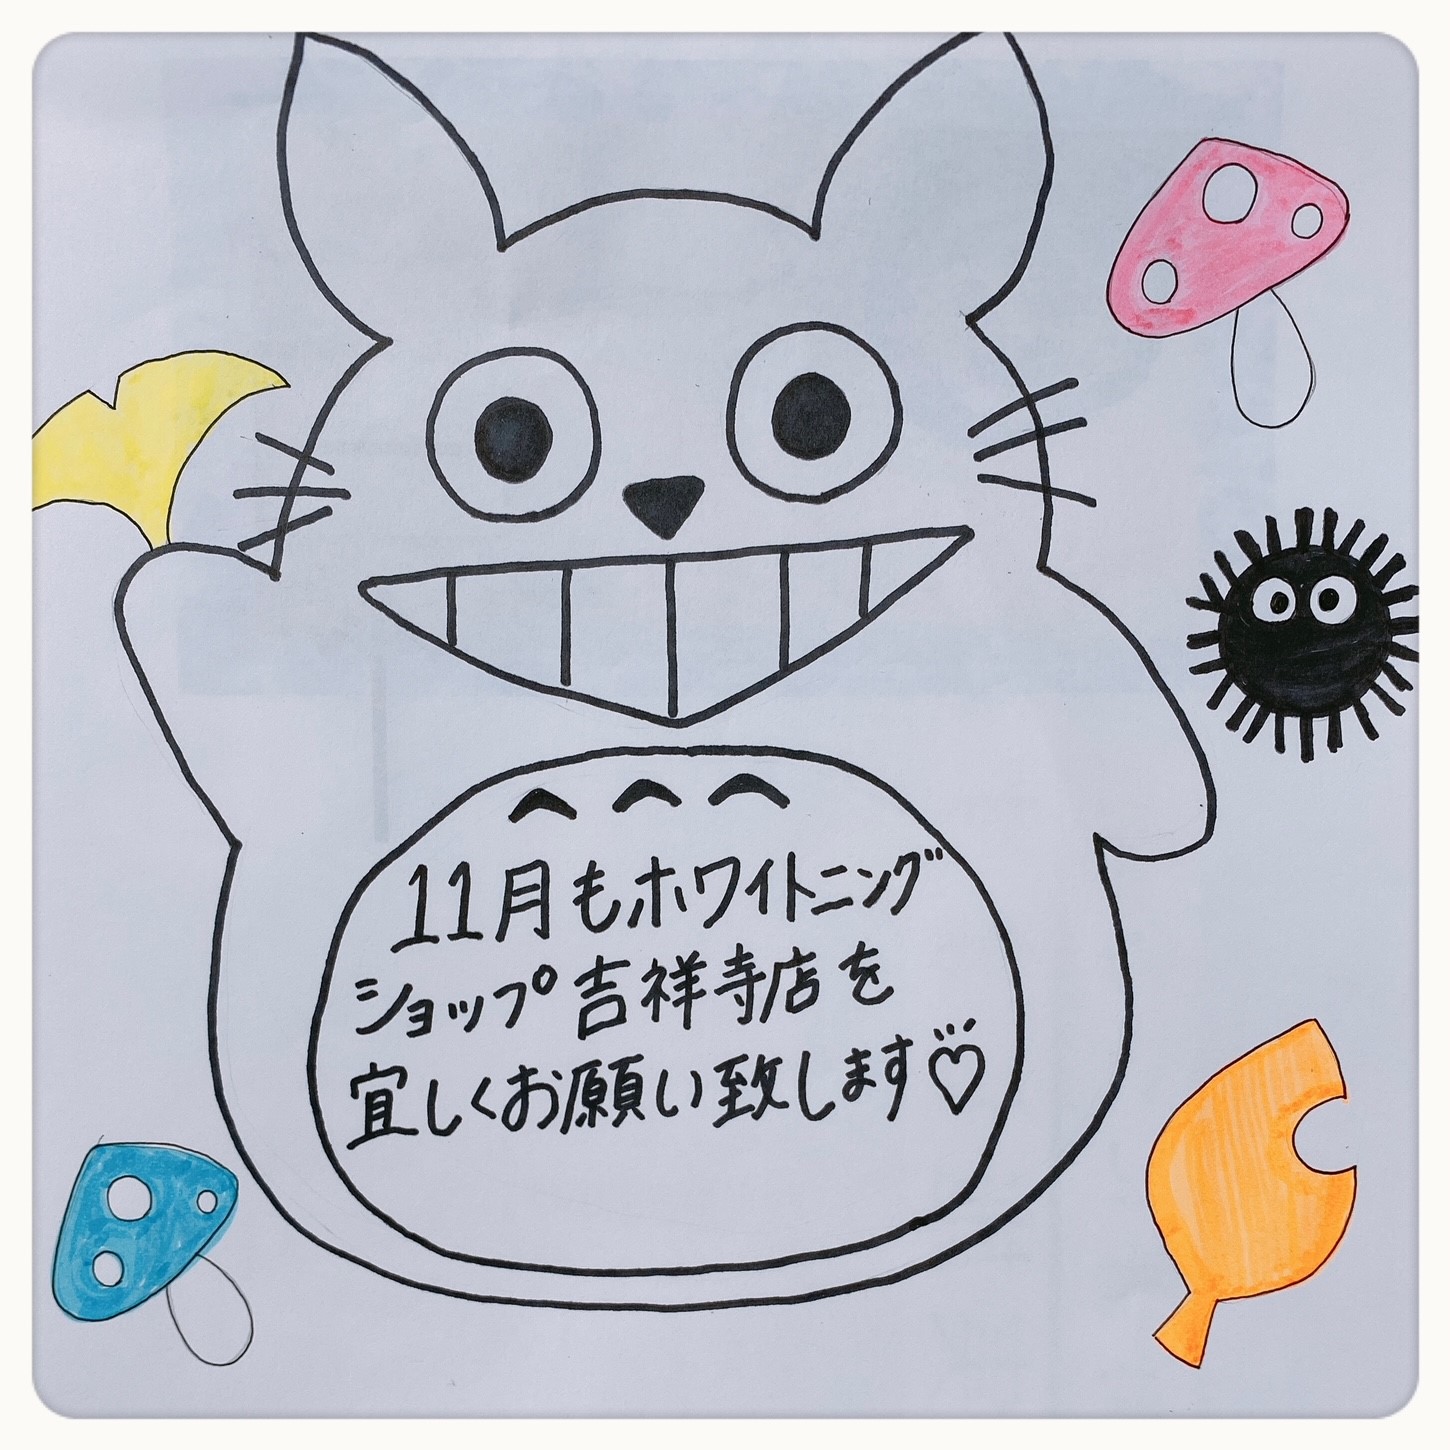 11月もホワイトニング
ショップ吉祥寺店を
宜しくお願い致します♡